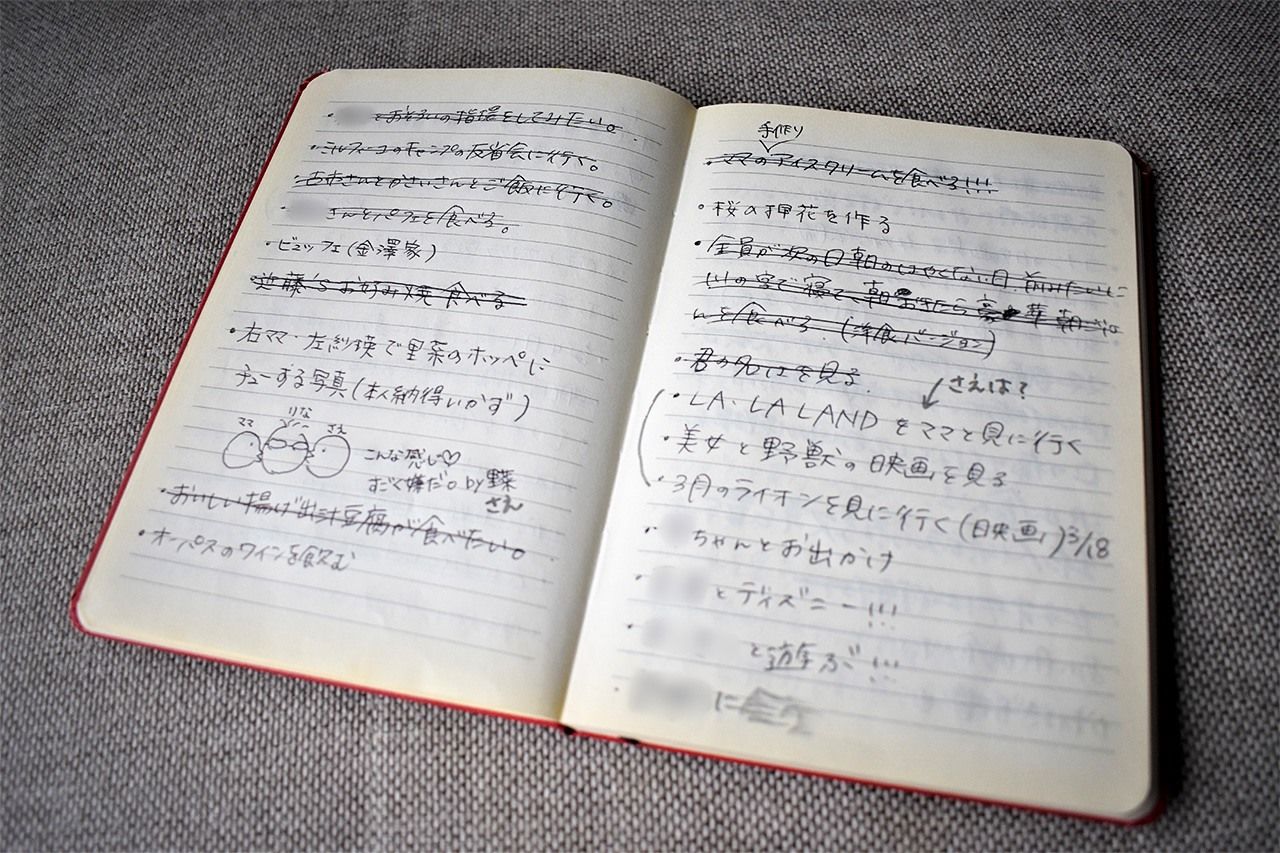 ・とおそろいの指環をしてみたい。
・ミルフィーユのキャンプの反省会に行く。
・古市さんとかさいさんとご飯に行く。
・さんとパフェを食べる。
・ビュッフェ(金澤家)
・近藤'sお好み焼 食べる
・右ママ・左紗瑛で里菜のホッペに
チューする写真(本人納得いかず)
ママ りな さえ
こんな感じ♡
すごく嫌だ。by里菜
さえ
・おいしい揚げ出汁豆腐が食べたい。
・オーパスのワインを飲む
手作り
・ママのアイスクリームを食べる!!!
・桜の押花を作る
・全員が次の日朝のはやくない日、前みたいに
いの室で寝て、朝起きたら豪華朝ごは
んを食べる。(洋食バージョン)
・君の名はを見る。
さえは?
・LA・LA LANDをママと見に行く
・美女と野獣の映画を見る
・3月のライオンを見に行く(映画)3/18
・ちゃんとお出かけ
・とディズニー!!!
・と遊ぶ!!!
・に会う